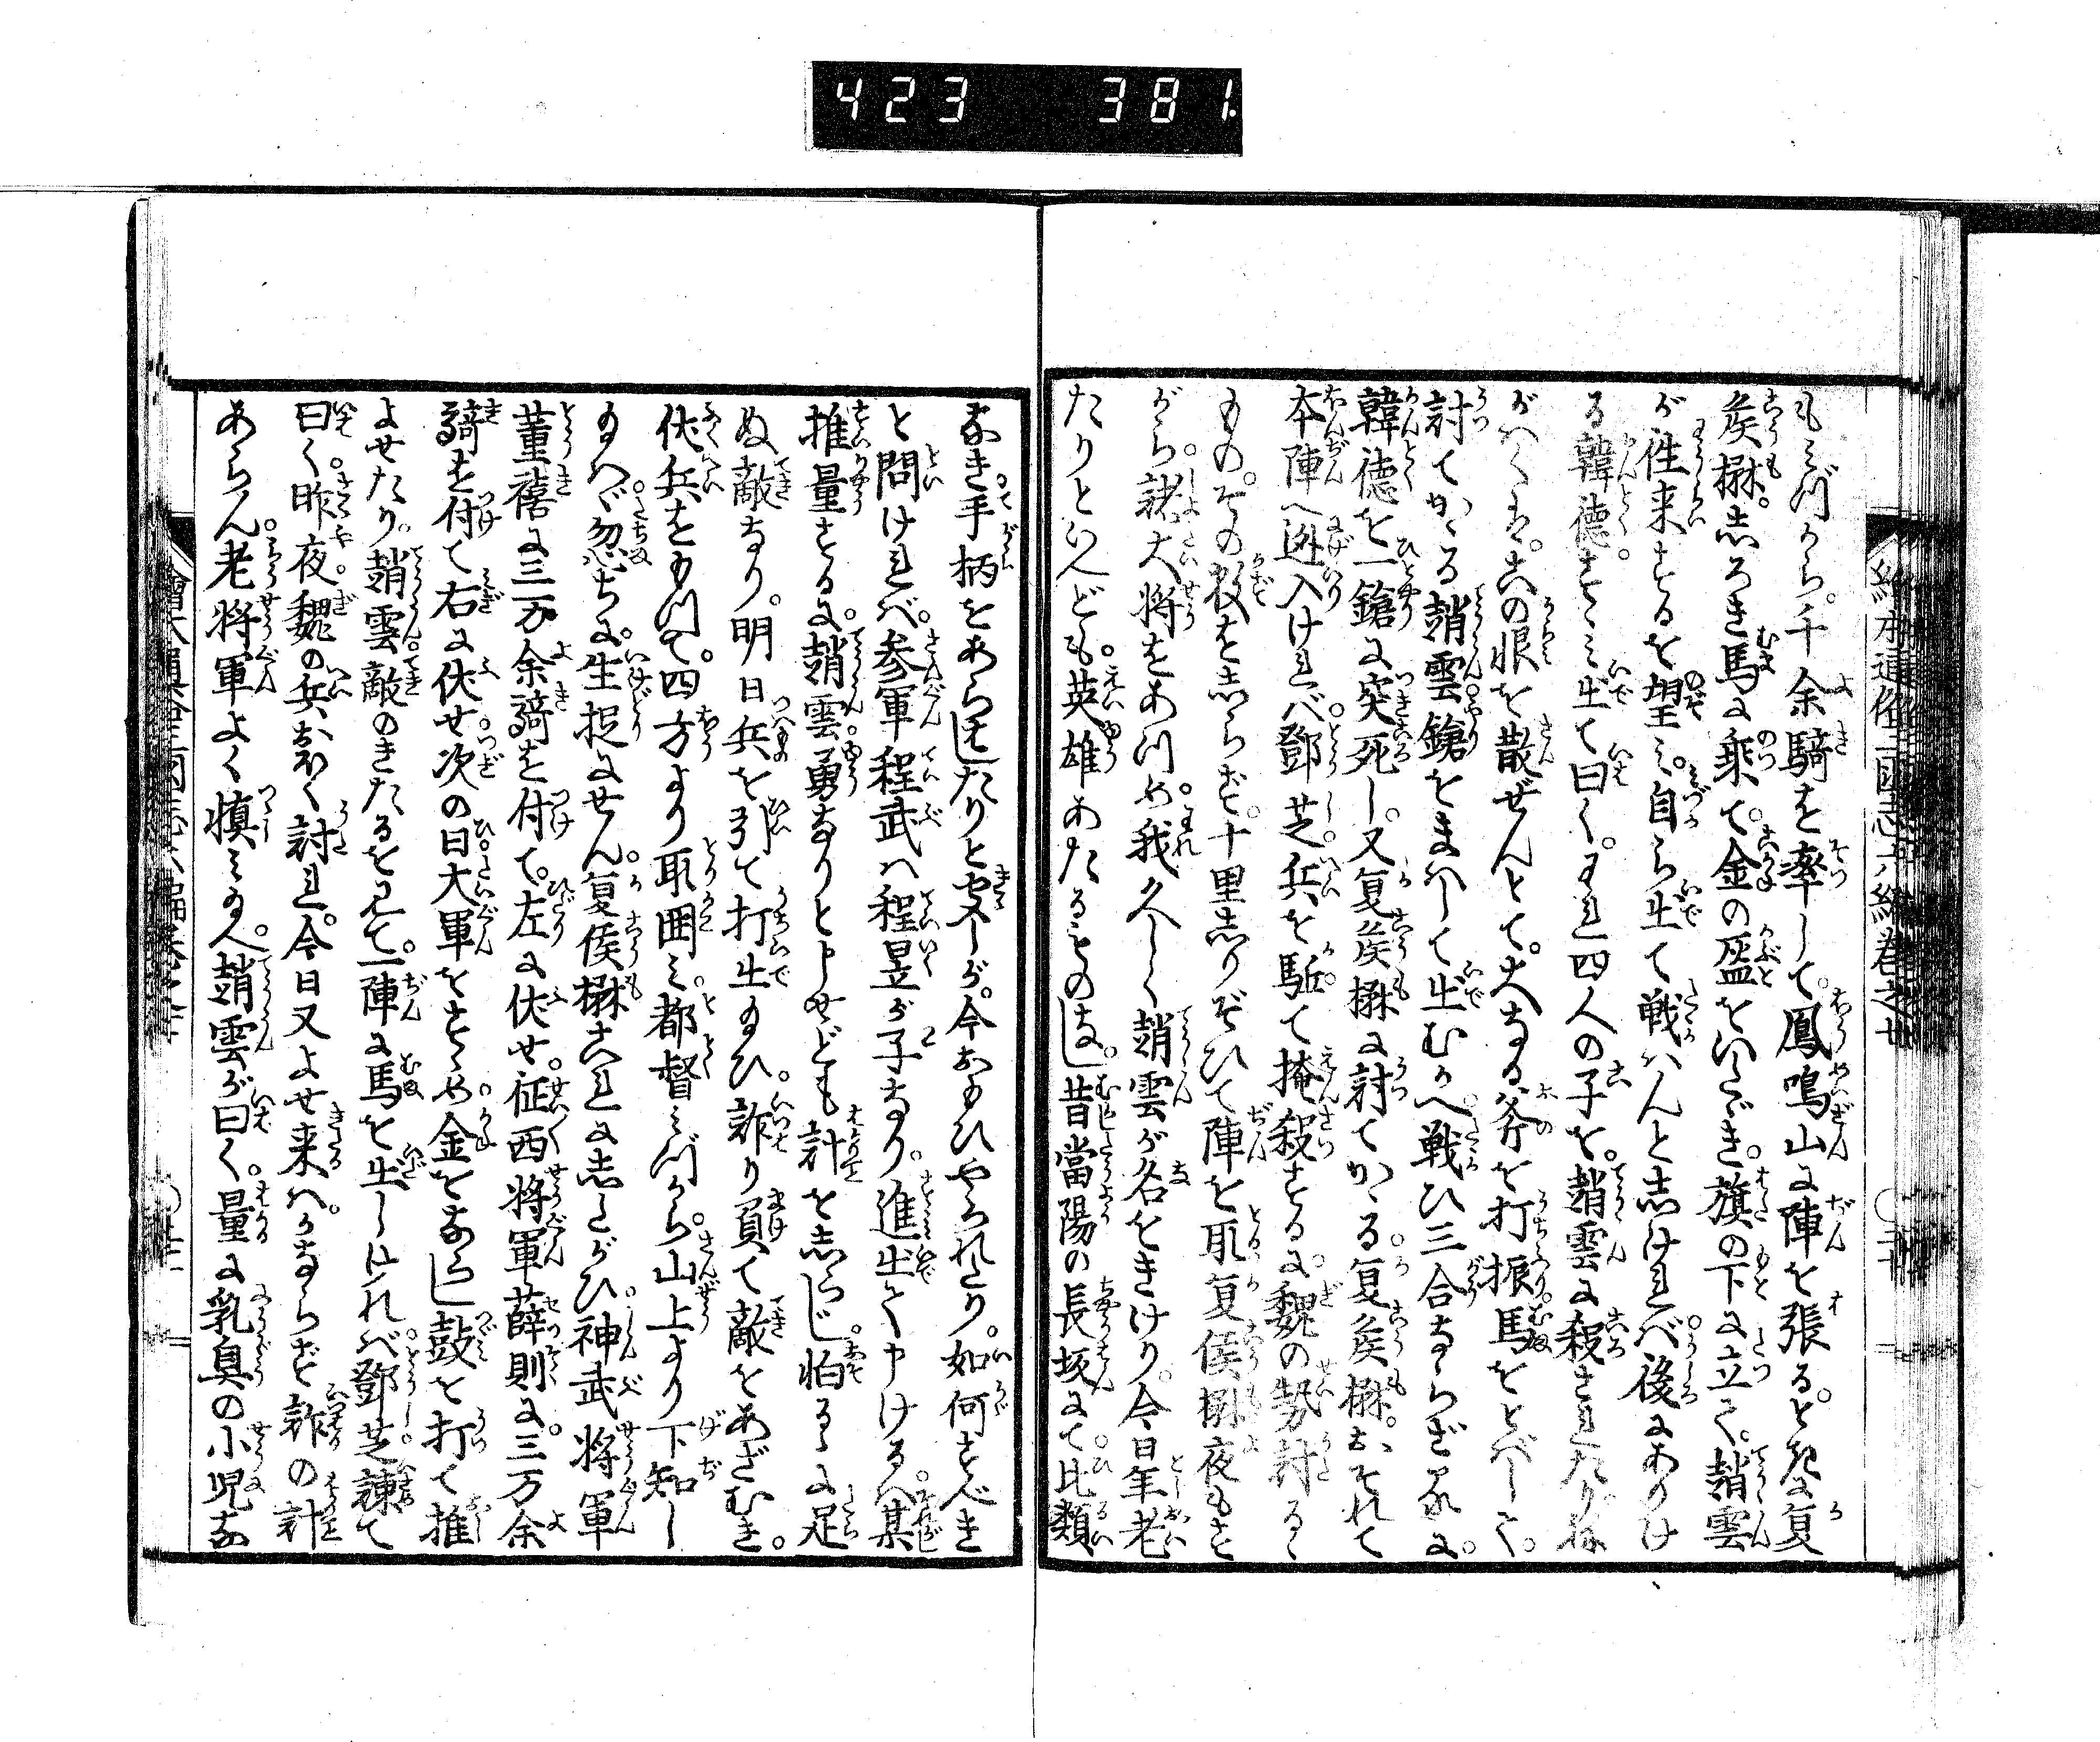 423 381
繪本通俗三國志六編卷之廿
もみづから千余騎を率して鳳鳴山に陣を張ると夏
侯楙しろき馬に乗て金の盔をいたゞき旗の下に立て趙雲
が往来するを望み自ら出て戦はんとしければ後にありけ
る韓徳すゝみ出て曰くわれ四人の子を趙雲に殺されたり
がはくは此の恨を散ぜんとて大なる斧を打振馬をとばして
討てかゝる趙雲鎗をまはして出むかへ戦ひ三合ならざるに
韓徳を一鎗に突死し又夏侯楙に討てかゝる夏侯楙おそれて
本陣へ逃入ければ鄧芝兵を駈て掩殺するに魏の勢討るゝ
ものその数をしらず十里しりぞひて陣を取夏侯楙夜もす
がら諸大将をあつめ我久しく趙雲が名をきけり今日年老
たりといへども英雄あたるものなし昔當陽の長坂にて比類
なき手柄をあらはしたりと聞しが今おもひやられたり如何すべき
と問ければ参軍程武は程昱が子なり進出て申けるは某
推量するに趙雲勇なりと申せども計をしらじ怕るゝに足
ぬ敵なり明日兵を引て打出玉ひ詐り負て敵をあざむき
伏兵をもつて四方より取囲み都督みづから山上より下知し
玉へば忽ちに生捉にせん夏侯楙これにしたがひ神武将軍
董禧に三万余騎を付て左に伏せ征西将軍薛則に三万余
騎を付て右に伏せ次の日大軍をすゝめ金をならし鼓を打て推
よせたり趙雲敵のきたるを見て一陣に馬を出しければ鄧芝諫て
曰く昨夜魏の兵おほく討れ今日又よせ来はかならず詐の計
あらん老将軍よく慎み玉へ趙雲が曰く量に乳臭の小児な